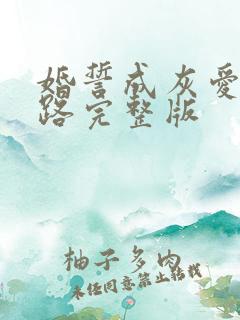 婚誓成灰愛
路完整版
柚子多肉
未经同意禁止转载